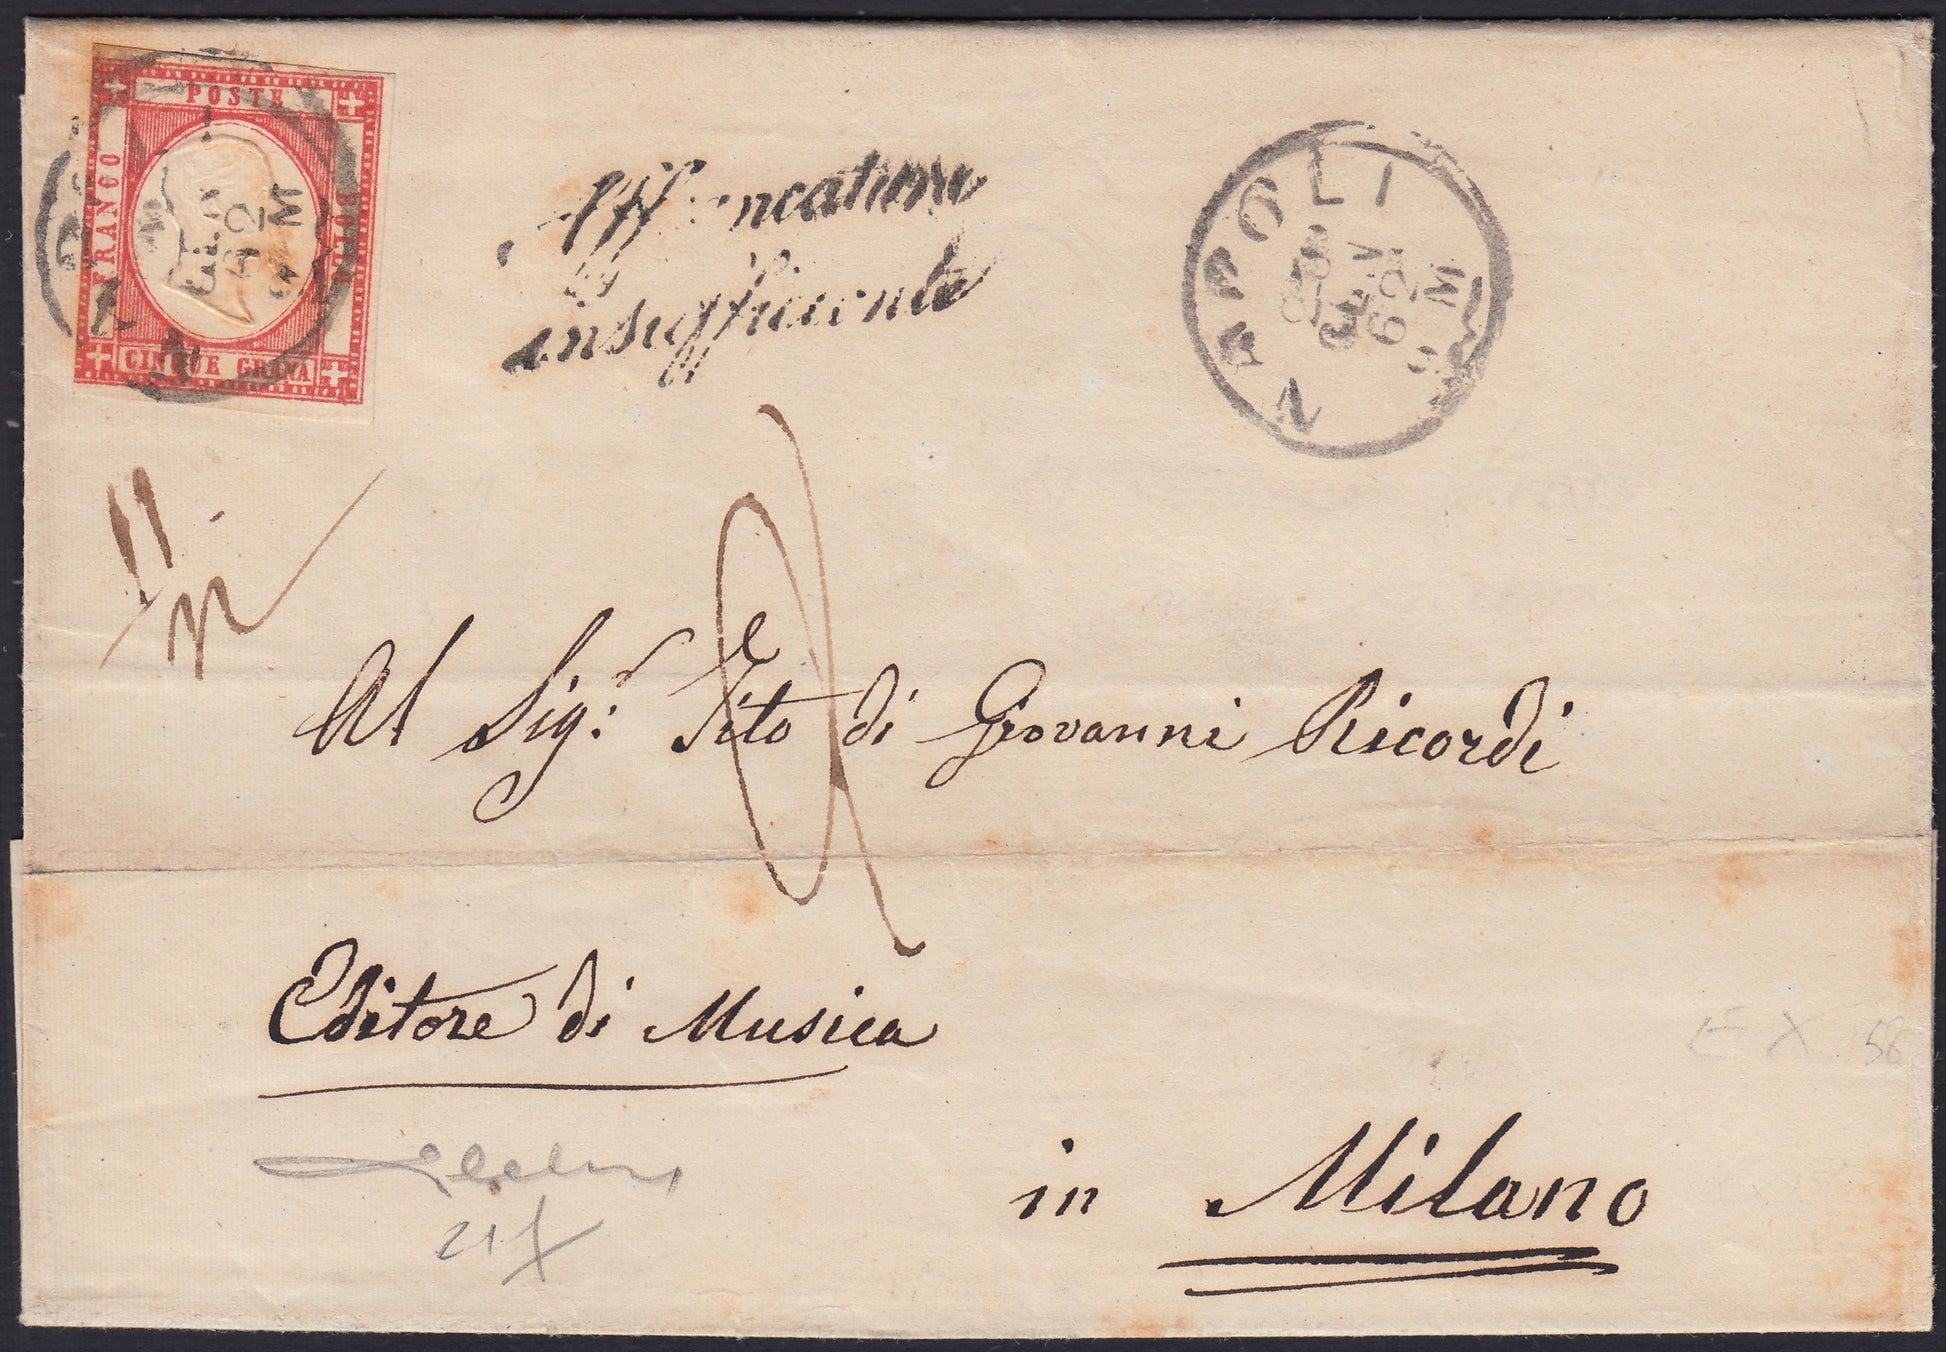 POSTE
FRANCO
BOLLO
CINQUE GRANA
Affrancatura
insufficiente
NAPOLI
GEN
62
Al Sig.r Tito di Giovanni Ricordi
Editore di Musica
in Milano
21